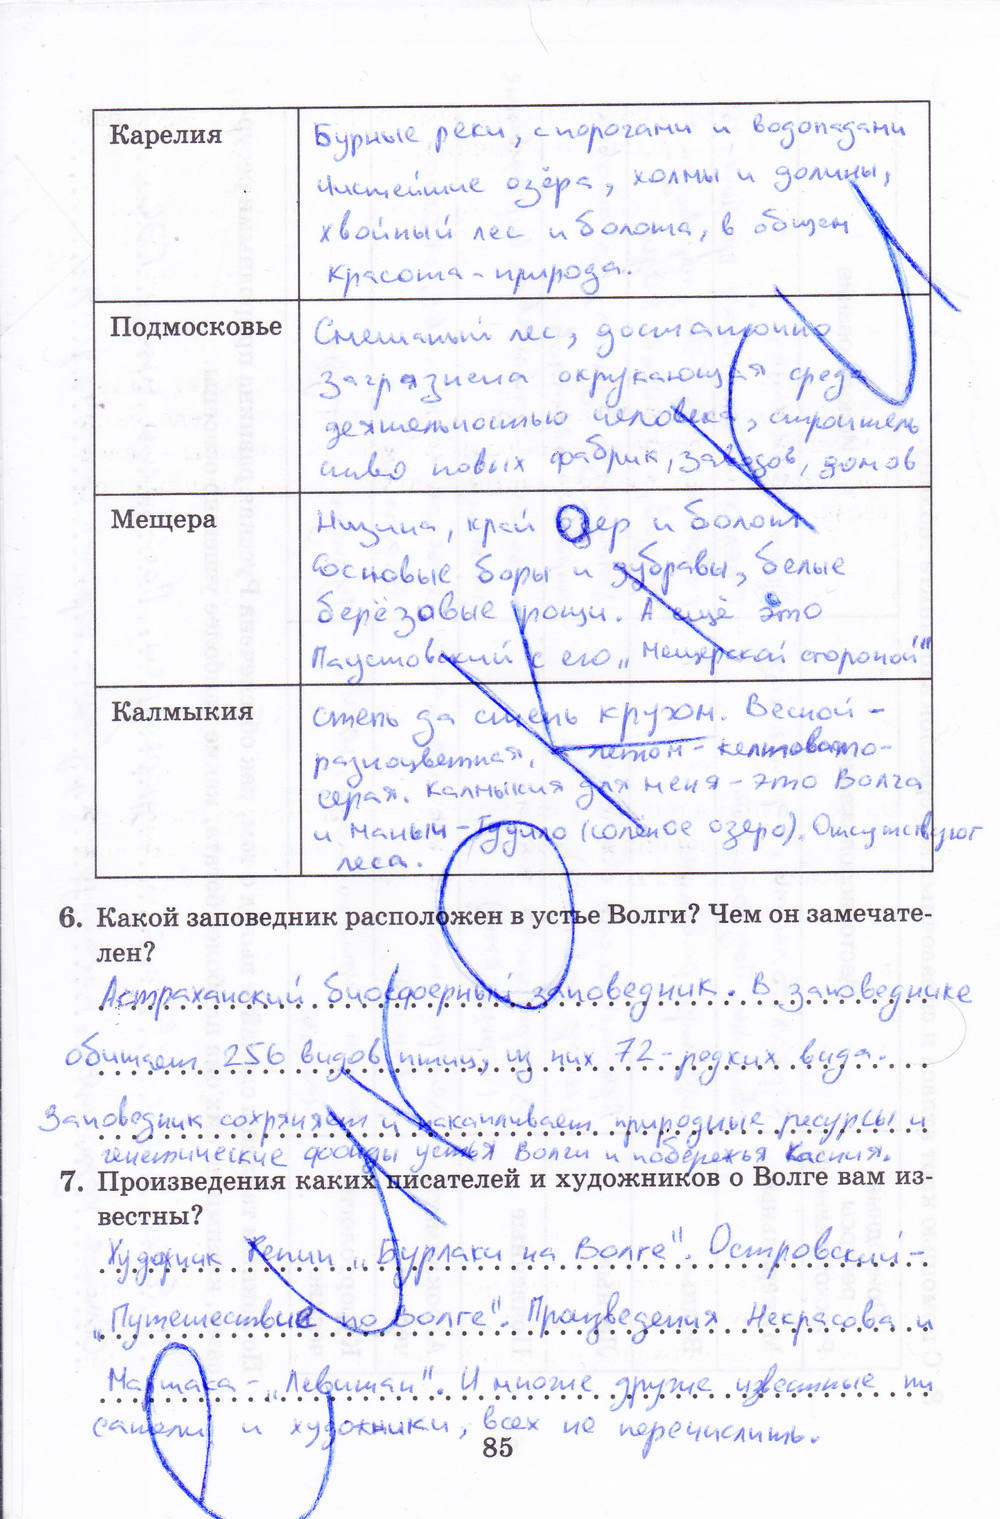 Карелия
Бурные реки, с порогами и водопадами
чистейшие озёра, холмы и долины,
хвойный лес и болота, в общем
красота-природа.
Подмосковье
Смешаный лес, достаточно
загрязнена окружающая среда
деятельностью человека, строитель
ство новых фабрик, заводов, домов
Мещера
Низина, край озер и болот
Сосновые боры и дубравы, белые
берёзовые рощи. А ещё это
Паустовский с его „Мещерской стороной"
Калмыкия
Степь да степь кругом. Весной -
разноцветная, летом - желтовато-
серая. Калмыкия для меня - это Волга
и Маныч-Гудило (солёное озеро). Отсутствуют
леса.
6. Какой заповедник расположен в устье Волги? Чем он замечате-
лен?
Астраханский биосферный заповедник. В заповеднике
обитает 256 видов птиц, из них 72 - редких вида.
Заповедник сохряняет и накапливает природные ресурсы и
генетические фонды устья Волги и побережья Каспия.
7. Произведения каких писателей и художников о Волге вам из-
вестны?
Художник Репин „Бурлаки на Волге". Островский -
„Путешествие по Волге". Произведения Некрасова и
- „Левитан". И многие другие известные пи
сатели и художники, всех не перечислить.
85